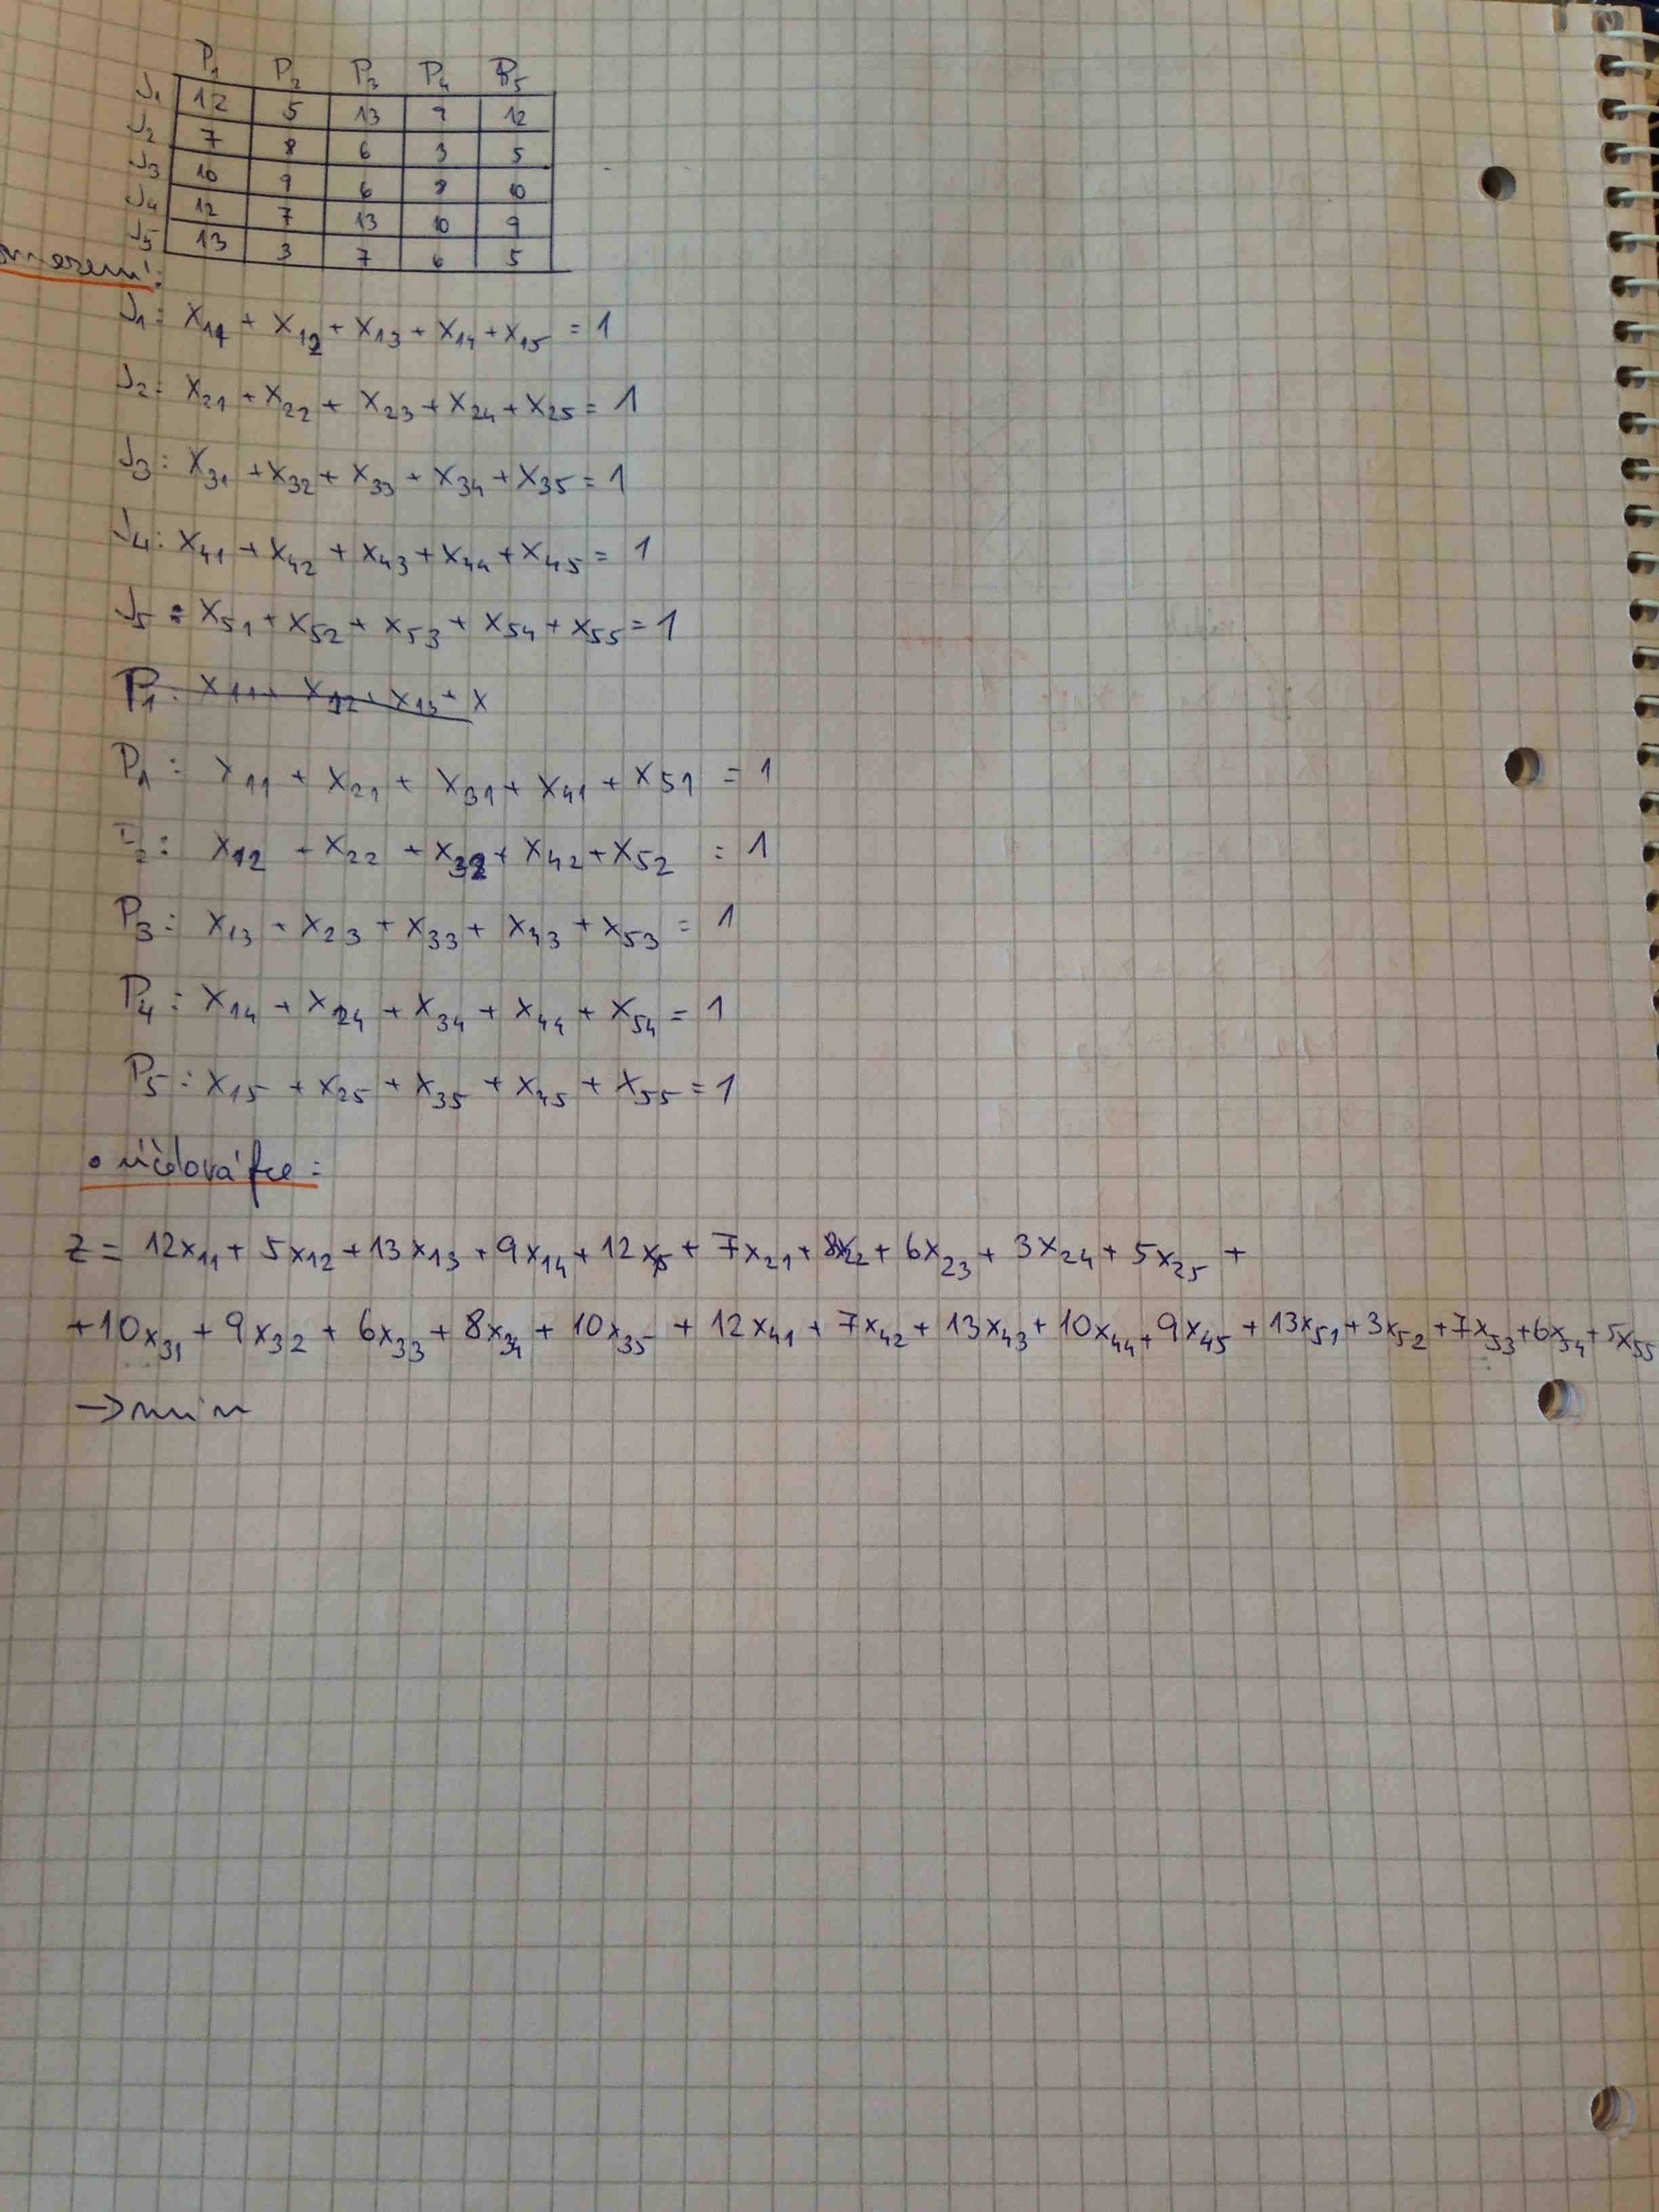 P1 P2 P3 P4 P5
J1 12 5 13 9 12
J2 7 8 6 3 5
J3 10 9 6 8 10
J4 12 7 13 10 9
J5 13 3 7 6 5
omezení:
J1: x11 + x12 + x13 + x14 + x15 = 1
J2: x21 + x22 + x23 + x24 + x25 = 1
J3: x31 + x32 + x33 + x34 + x35 = 1
J4: x41 + x42 + x43 + x44 + x45 = 1
J5: x51 + x52 + x53 + x54 + x55 = 1
P1: x11 + x12 + x13 + x
P1: x11 + x21 + x31 + x41 + x51 = 1
P2: x12 + x22 + x32 + x42 + x52 = 1
P3: x13 + x23 + x33 + x43 + x53 = 1
P4: x14 + x24 + x34 + x44 + x54 = 1
P5: x15 + x25 + x35 + x45 + x55 = 1
• účelová fce:
z = 12x11 + 5x12 + 13x13 + 9x14 + 12x15 + 7x21 + 8x22 + 6x23 + 3x24 + 5x25 +
+10x31 + 9x32 + 6x33 + 8x34 + 10x35 + 12x41 + 7x42 + 13x43 + 10x44 + 9x45 + 13x51 + 3x52 + 7x53 + 6x54 + 5x55
→ min